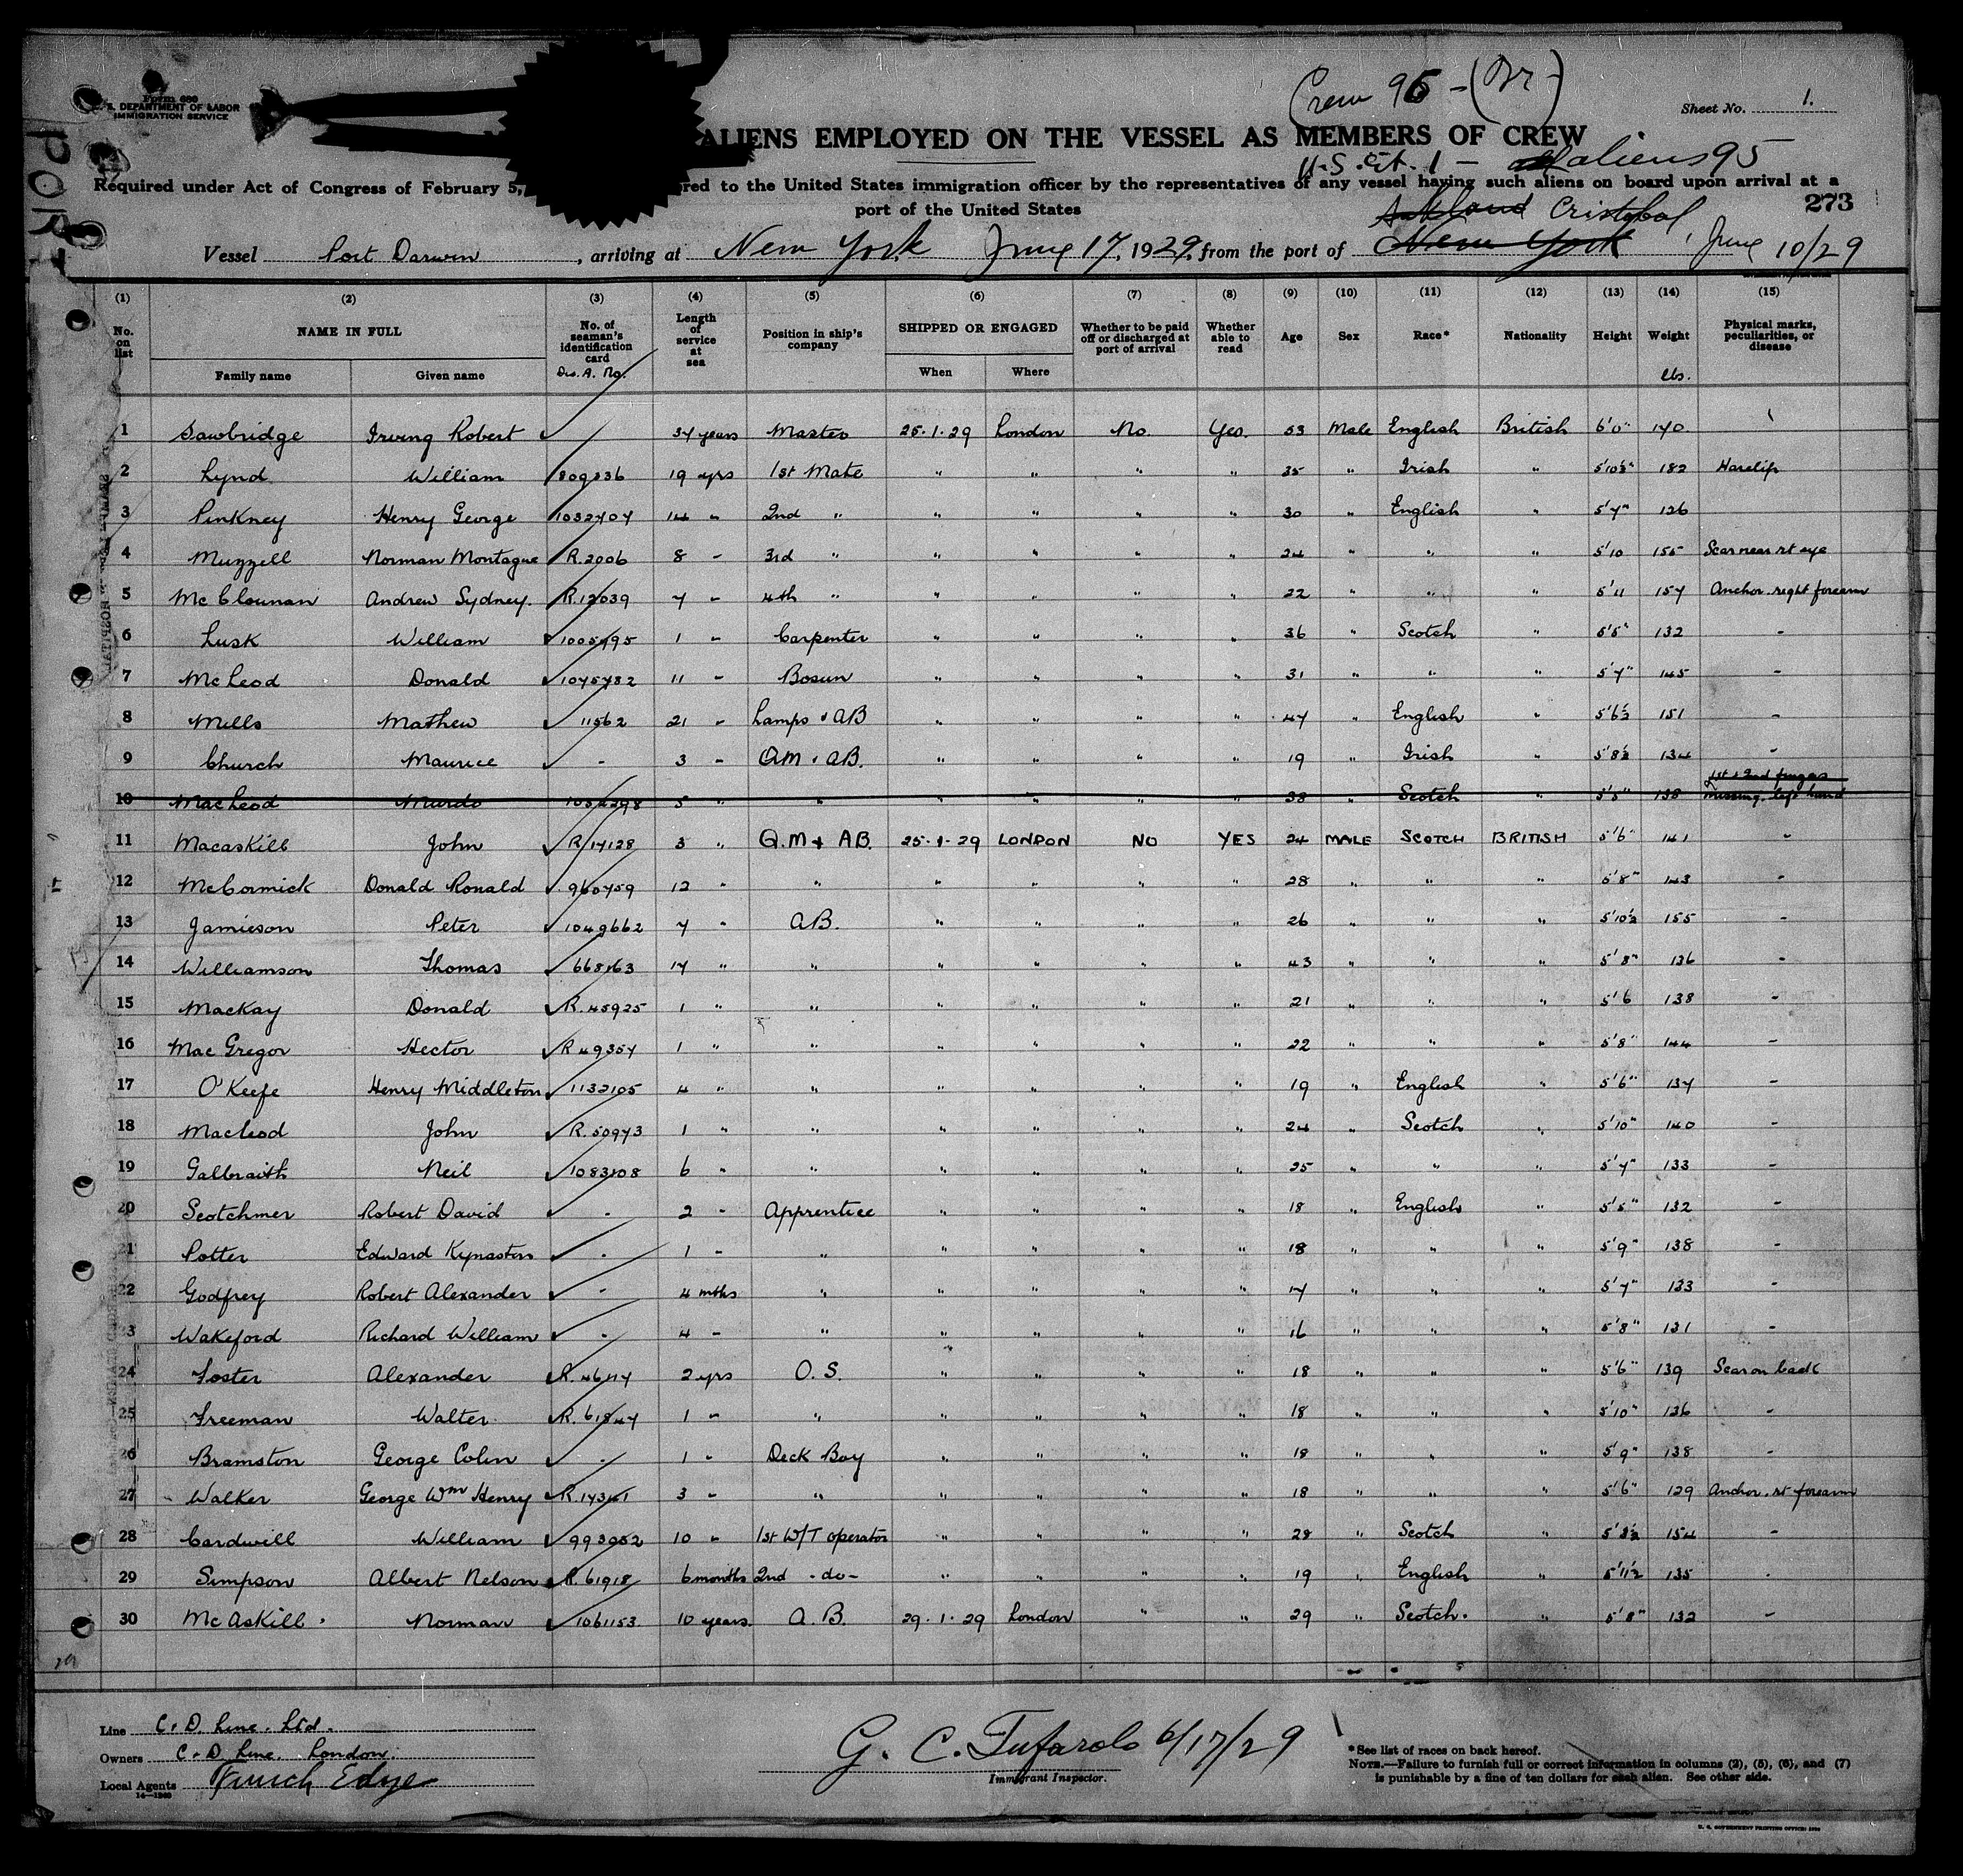 Crew 95 - (Br)
Form 680
U. S. DEPARTMENT OF LABOR
IMMIGRATION SERVICE
Sheet No. 1.
ALIENS EMPLOYED ON THE VESSEL AS MEMBERS OF CREW
U.S. Cit. 1 - aliens 95
Required under Act of Congress of February 5, red to the United States immigration officer by the representatives of any vessel having such aliens on board upon arrival at a
port of the United States
273
Vessel Port Darwin, arriving at New York June 17, 1929, from the port of New York Cristobal, June 10/29
(1) (2) (3) (4) (5) (6) (7) (8) (9) (10) (11) (12) (13) (14) (15)
No. on list NAME IN FULL No. of seaman's identification card Length of service at sea Position in ship's company SHIPPED OR ENGAGED Whether to be paid off or discharged at port of arrival Whether able to read Age Sex Race* Nationality Height Weight Physical marks, peculiarities, or disease
Family name Given name Dis. A. No. When Where lbs.
1 Sawbridge Irving Robert 34 years Master 25.1.29 London No. Yes. 53 Male English British 6'0" 170
2 Lynd William 809336 19 yrs 1st Mate " " " " 35 " Irish " 5'10½" 182 Harelip
3 Pinkney Henry George 1032707 14 " 2nd " " " " " 30 " English " 5'7" 126
4 Muzzell Norman Montague R.2006 8 " 3rd " " " " " 24 " " " 5'10 155 Scar near rt eye
5 McClounan Andrew Sydney. R.12039 7 " 4th " " " " " 22 " " " 5'11 157 Anchor. right forearm
6 Lusk William 1005795 1 " Carpenter " " " " 36 " Scotch " 5'5" 132 -
7 McLeod Donald 1075782 11 " Bosun " " " " 31 " " " 5'7" 145 -
8 Mills Mathew 11562 21 " Lamps & AB " " " " 47 " English " 5'6½ 151 -
9 Church Maurice - 3 " QM & AB. " " " " 19 " Irish " 5'8½ 134 -
10 MacLeod Murdo 1054298 5 " " " " " " 38 " Scotch " 5'8" 138 1st & 2nd fingers missing. left hand
11 Macaskill John R/14128 3 " Q.M & AB. 25.1.29 LONDON NO YES 24 MALE SCOTCH BRITISH 5'6" 141 -
12 McCormick Donald Ronald 960759 12 " " " " " " 28 " " " 5'8" 143 -
13 Jamieson Peter 1049662 7 " AB. " " " " 26 " " " 5'10½ 155 -
14 Williamson Thomas 668163 17 " " " " " " 43 " " " 5'8" 136 -
15 Mackay Donald R.45925 1 " " " " " " 21 " " " 5'6 138 -
16 MacGregor Hector R 49357 1 " " " " " " 22 " " " 5'8" 144 -
17 O'Keefe Henry Middleton 1132105 4 " " " " " " 19 " English " 5'6" 137 -
18 Macleod John R.50973 1 " " " " " " 24 " Scotch " 5'10" 140 -
19 Galbraith Neil 1083108 6 " " " " " " 25 " " " 5'7" 133 -
20 Scotchmer Robert David - 2 " Apprentice " " " " 18 " English " 5'5" 132 -
21 Potter Edward Kynaston - 1 " " " " " " 18 " " " 5'9" 138 -
22 Godfrey Robert Alexander - 4 mths " " " " " 17 " " " 5'7" 133 -
23 Wakeford Richard William - 4 " " " " " " 16 " " " 5'8" 131 -
24 Foster Alexander 2 yrs O.S. " " " " 18 " " " 5'6" 139 Scar on back
25 Freeman Walter R.61847 1 " " " " " " 18 " " " 5'10" 136 -
26 Bramston George Colin - 1 " Deck Boy " " " " 18 " " " 5'9" 138 -
27 Walker George Wm Henry 3 " " " " " " 18 " " " 5'6" 129 Anchor. rt forearm
28 Cardwill William 993952 10 " 1st W/T operator " " " " 28 " Scotch " 154 -
29 Simpson Albert Nelson R.61918 6 months 2nd -do- " " " " 19 " English " 5'11½ 135 -
30 McAskill Norman 1061153. 10 years. A.B. 29.1.29 London " " 29 " Scotch. " 5'8" 132 -
Line C & D. Line. Ltd.
Owners C & D. Line. London.
Local Agents Edye
14-1240
G. C. Tufarolo 6/17/29
Immigrant Inspector.
*See list of races on back hereof.
NOTE.—Failure to furnish full or correct information in columns (2), (5), (6), and (7)
is punishable by a fine of ten dollars for each alien. See other side.
U. S. GOVERNMENT PRINTING OFFICE